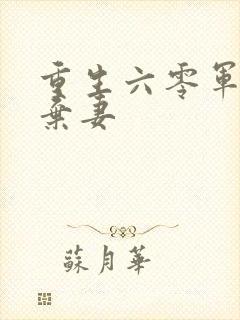 重生六零軍
棄妻
蘇月華